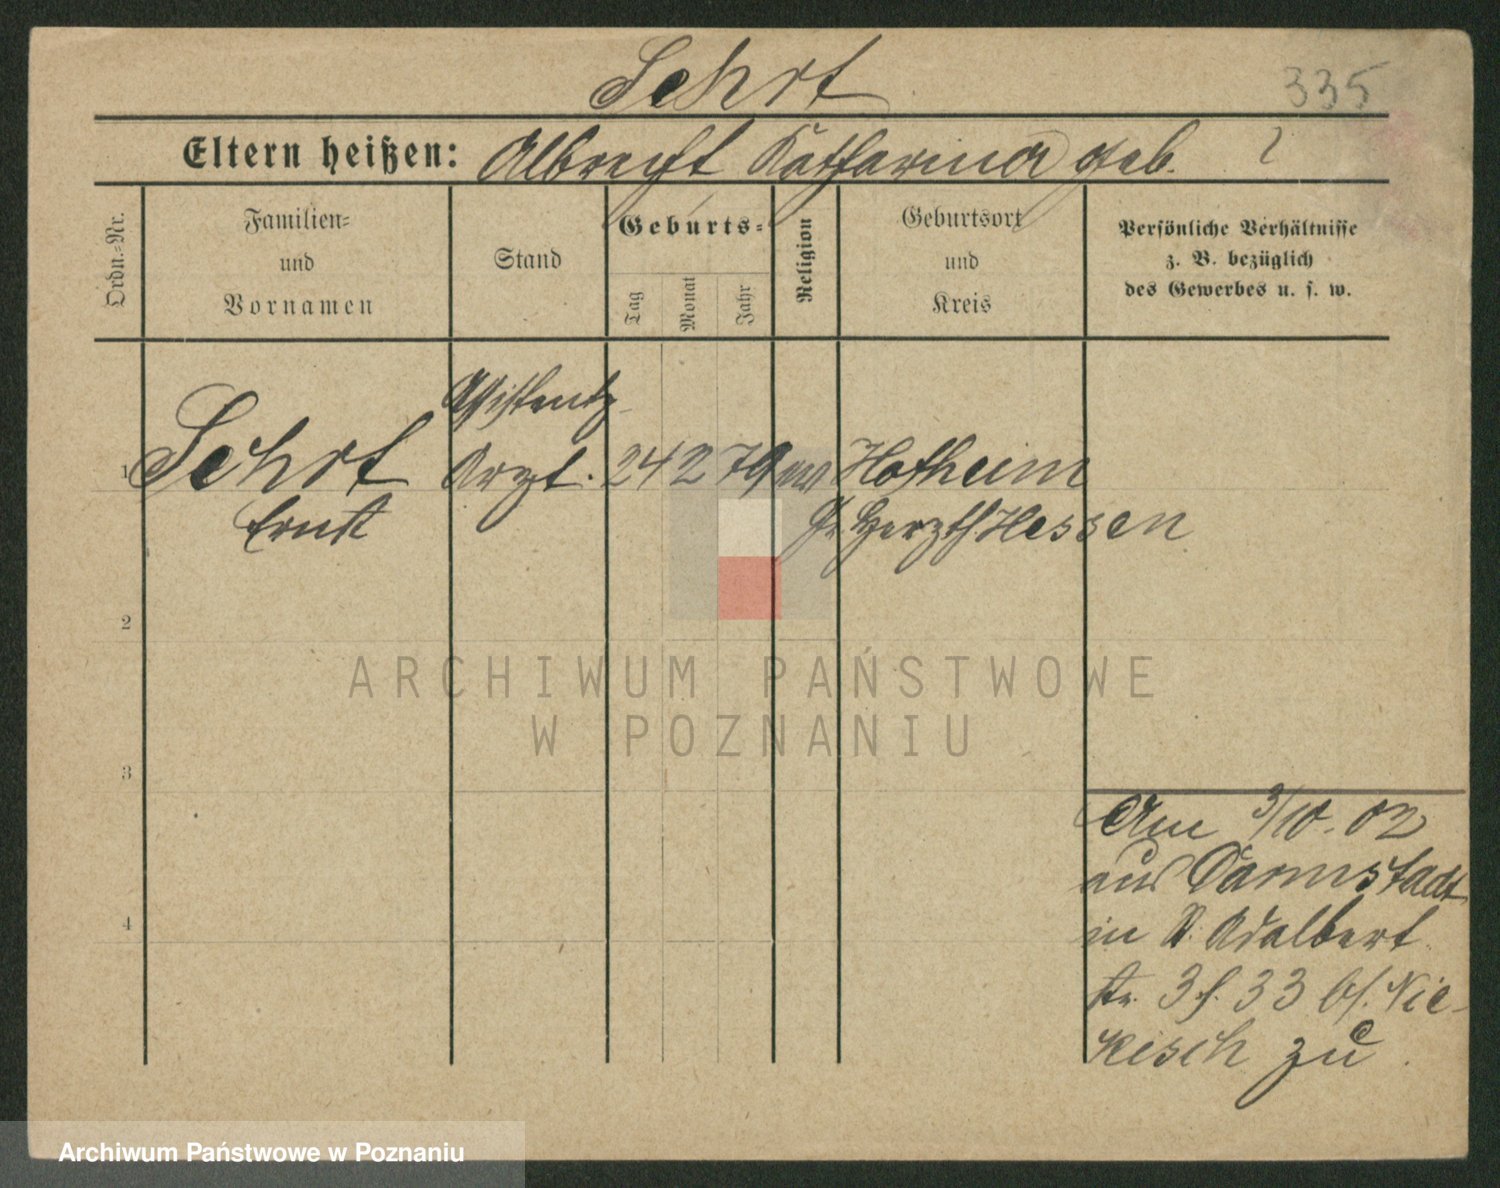 Sehrt
335
Eltern heißen: Albrecht Katharina geb. ?
Ordn.-Nr.
Familien-
und
Vornamen
Stand
Geburts-
Tag
Monat
Jahr
Religion
Geburtsort
und
Kreis
Persönliche Verhältnisse
z. B. bezüglich
des Gewerbes u. s. w.
Assistenz-
1 Sehrt Arzt. 24 2 79 ev Hofheim
Ernst Gr. Herzth Hessen
2
ARCHIWUM PAŃSTWOWE
W POZNANIU
3
Am 3/10. 02
aus Darmstadt
4
in P. Adalbert
str. 3 f. 33 bf. Nie-
kisch zu.
Archiwum Państwowe w Poznaniu